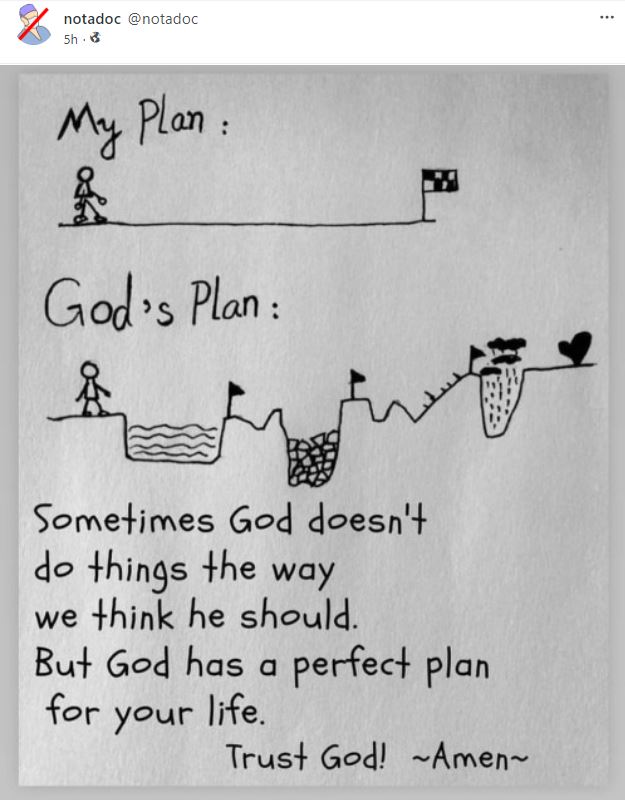 notadoc @notadoc
5h ·
My Plan :
God's Plan :
Sometimes God doesn't
do things the way
we think he should.
But God has a perfect plan
for your life.
Trust God! ~Amen~